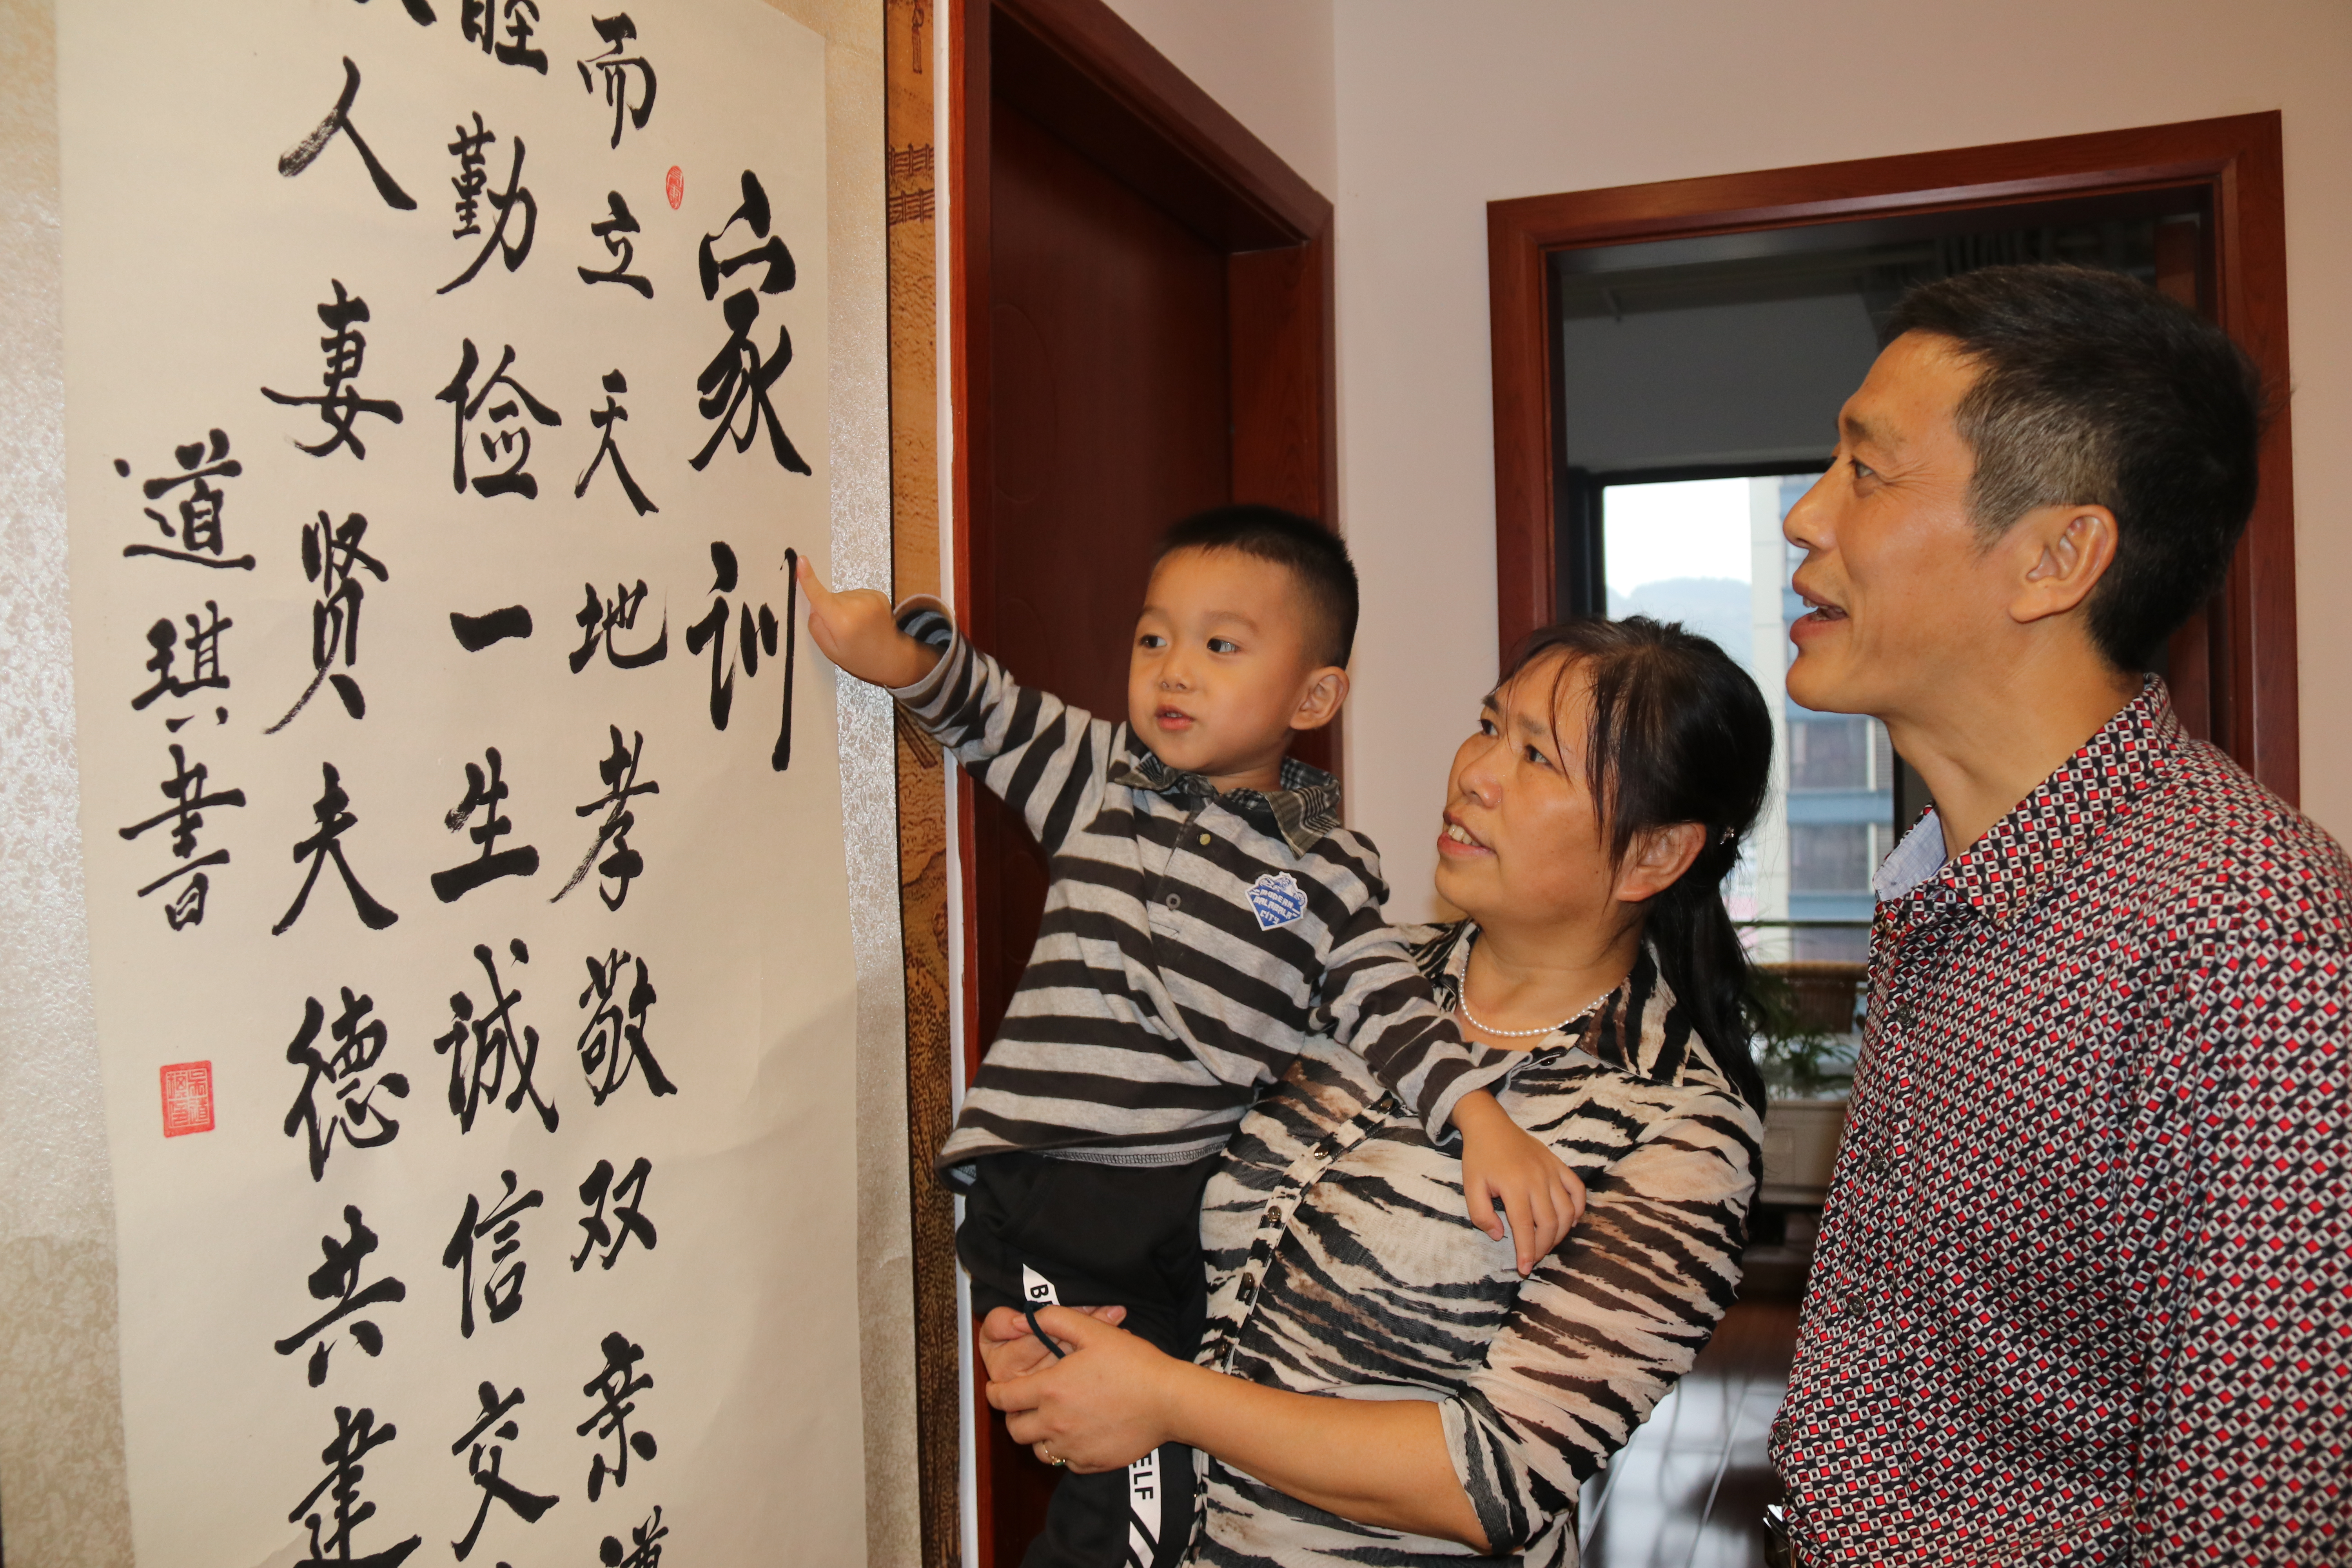 家训
而立天地孝敬双亲道
睦勤俭一生诚信交
人妻贤夫德共建
道琪書
CITY
ELF